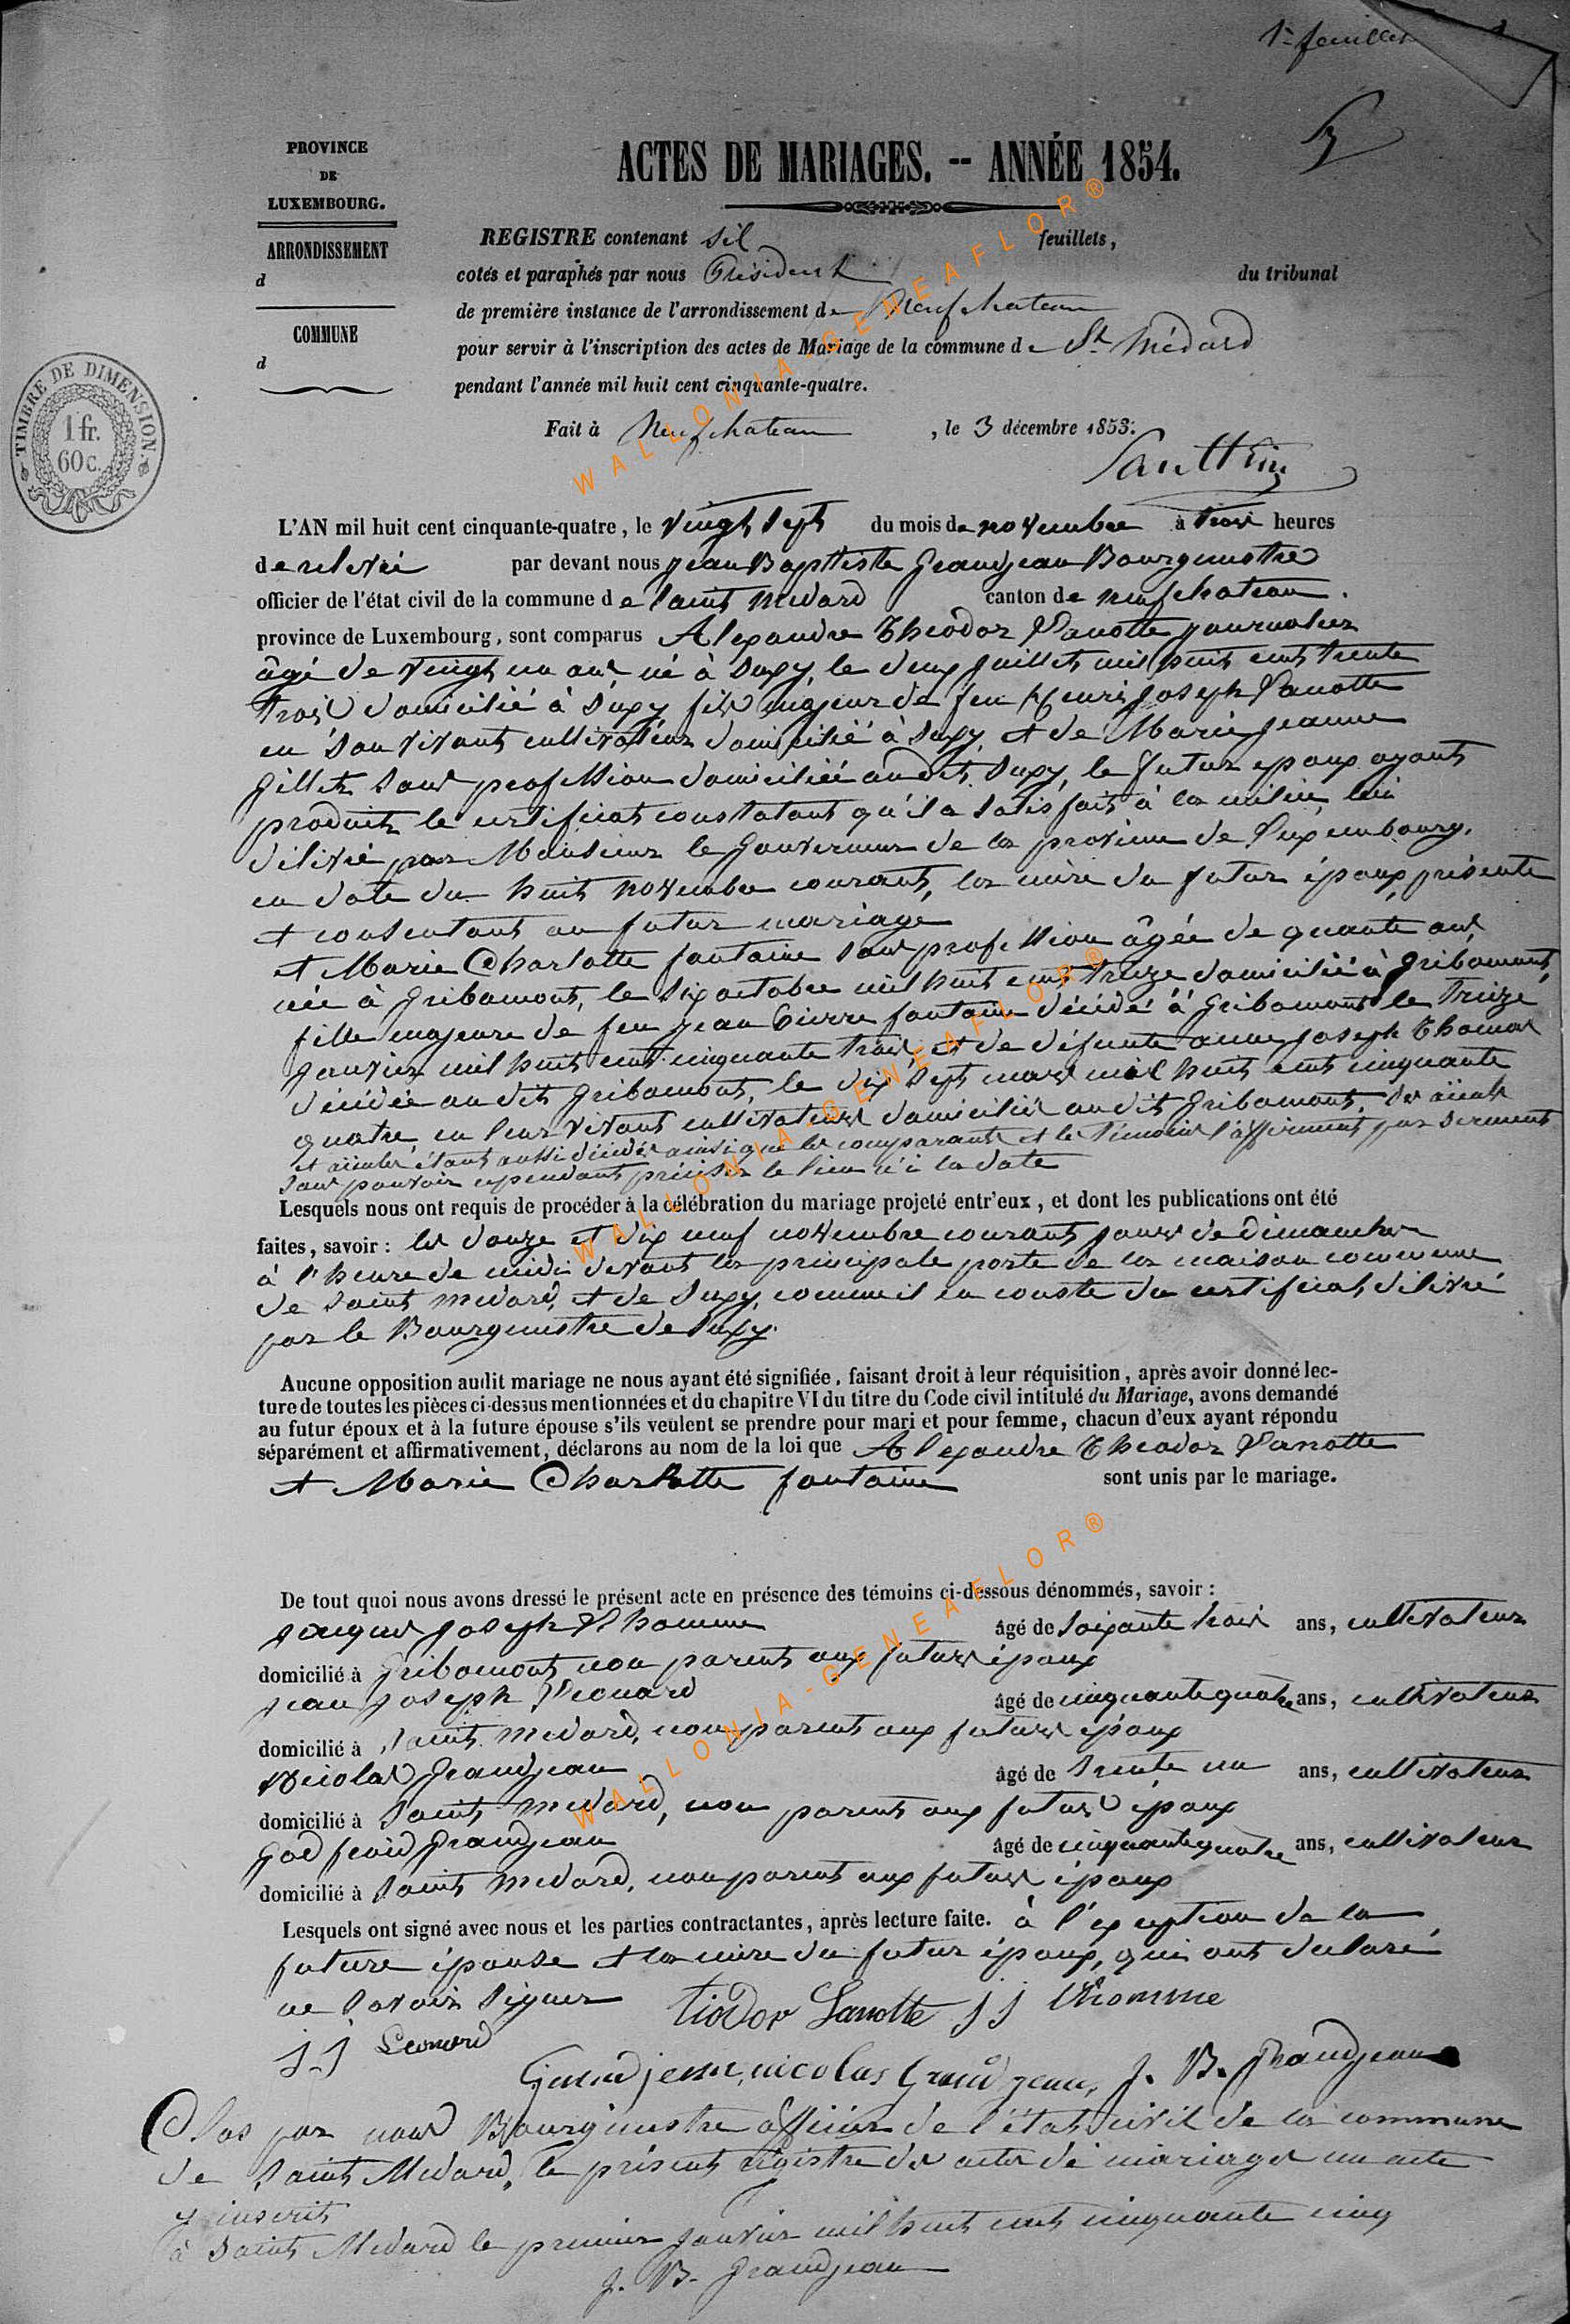 1r feuillet
PROVINCE
DE
LUXEMBOURG.
ARRONDISSEMENT
d
COMMUNE
d
TIMBRE DE DIMENSION.
1 fr.
60 c.
ACTES DE MARIAGES. -- ANNÉE 1854.
REGISTRE contenant six feuillets,
cotés et paraphés par nous Président du tribunal
de première instance de l'arrondissement de Neufchateau
pour servir à l'inscription des actes de Mariage de la commune de St Médard
pendant l'année mil huit cent cinquante-quatre.
Fait à Neufchateau, le 3 décembre 1853.
L'AN mil huit cent cinquante-quatre, le vingt sept du mois de novembre à trois heures
de relevée par devant nous Jean Baptiste Grandjean Bourgmestre
officier de l'état civil de la commune de Saint Medard canton de neufchateau.
province de Luxembourg, sont comparus Alexandre Théodor Lanotte journalier
âgé de vingt un ans né à Suxy, le deux juillet mil huit cent trente
trois domicilié à Suxy fils majeur de feu Henri Joseph Lanotte
en son vivant cultivateur domicilié à Suxy, et de Marie Jeanne
Gillet sans profession domiciliée audit Suxy, le futur epoux ayant
produit le certificat constatant qu'il a satisfait à la milice lui
délivré par Monsieur le Gouverneur de la province de Luxembourg,
en date du huit novembre courant, la mère du futur époux présente
et consentant au futur mariage
et Marie Charlotte fontaine sans profession âgée de quante ans
née à Gribomont, le six octobre mil huit cent treize domiciliée à Gribomont,
fille majeure de feu Jean Pierre fontaine décédé à Gribomont le treize
janvier mil huit cent cinquante trois et de défunte anne Joseph Thomas
décédée au dit Gribomont, le dix sept mars mil huit cent cinquante
quatre, en leur vivant cultivateurs domiciliés au dit Gribomont, les aïeuls
et aïeules étant aussi décédés ainsi que les comparants et les témoins l'affirment par serment
sans pouvoir cependant préciser le lieu ni la date
Lesquels nous ont requis de procéder à la célébration du mariage projeté entr'eux, et dont les publications ont été
faites, savoir : les douze et dix neuf novembre courant jours de dimanches
à l'heure de midi devant la principale porte de la maison commune
de Saint Medard, et de Suxy, comme il en conste du certificat délivré
par le Bourgmestre de Suxy.
Aucune opposition audit mariage ne nous ayant été signifiée, faisant droit à leur réquisition, après avoir donné lec-
ture de toutes les pièces ci-dessus mentionnées et du chapitre VI du titre du Code civil intitulé du Mariage, avons demandé
au futur époux et à la future épouse s'ils veulent se prendre pour mari et pour femme, chacun d'eux ayant répondu
séparément et affirmativement, déclarons au nom de la loi que Alexandre Théodor Lanotte
et Marie Charlotte fontaine sont unis par le mariage.
De tout quoi nous avons dressé le présent acte en présence des témoins ci-dessous dénommés, savoir :
Jacques Joseph Lhomme âgé de soixante trois ans, cultivateur
domicilié à Gribomont non parent aux futurs époux
Jean Joseph Léonard âgé de cinquante quatre ans, cultivateur
domicilié à Saint Medard, non parent aux futurs époux
Nicolas Grandjean âgé de trente un ans, cultivateur
domicilié à Saint Medard, non parent aux futurs époux
Godfroid Grandjean âgé de cinquante quatre ans, cultivateur
domicilié à Saint Medard, non parent aux futurs époux
Lesquels ont signé avec nous et les parties contractantes, après lecture faite. à l'exception de la
future épouse et la mère du futur époux, qui ont declaré
ne savoir signer tiodor Lanotte J J Lhomme
J J Leonard
Grandjean, nicolas Grandjean, J. B. Grandjean
Clos par nous Bourgmestre officier de l'état civil de la commune
de Saint Medard, le présent régistre des actes de mariages un acte
y inscrit
à Saint Medard le premier janvier mil huit cent cinquante cinq
J. B. Grandjean
WALLONIA-GENEAFLOR®
WALLONIA-GENEAFLOR®
WALLONIA-GENEAFLOR®